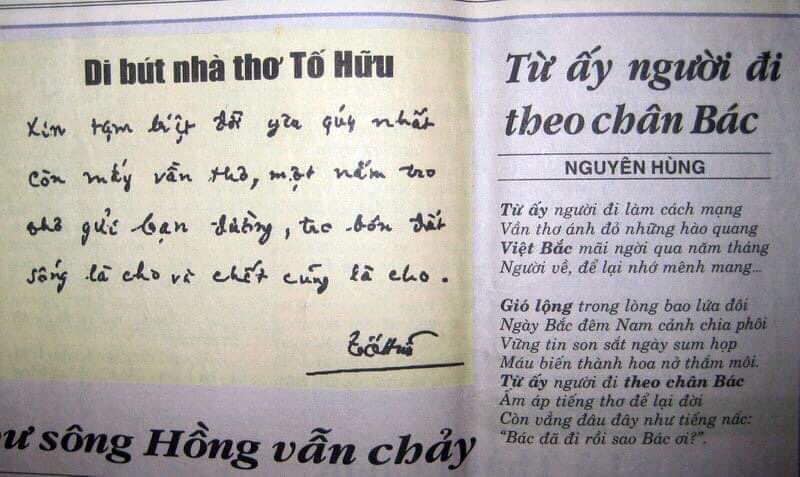 Di bút nhà thơ Tố Hữu
Xin tạm biệt đời yêu quý nhất
Còn mấy vần thơ, một nắm tro
Thơ gửi bạn đường, tro bón đất
Sống là cho và chết cũng là cho.
Tố Hữu
ư sông Hồng vẫn chảy
Từ ấy người đi
theo chân Bác
NGUYÊN HÙNG
Từ ấy người đi làm cách mạng
Vần thơ ánh đỏ những hào quang
Việt Bắc mãi ngời qua năm tháng
Người về, để lại nhớ mênh mang...
Gió lộng trong lòng bao lứa đôi
Ngày Bắc đêm Nam cánh chia phôi
Vững tin son sắt ngày sum họp
Máu biến thành hoa nở thắm môi.
Từ ấy người đi theo chân Bác
Ấm áp tiếng thơ để lại đời
Còn vẳng đâu đây như tiếng nấc:
"Bác đã đi rồi sao Bác ơi?".